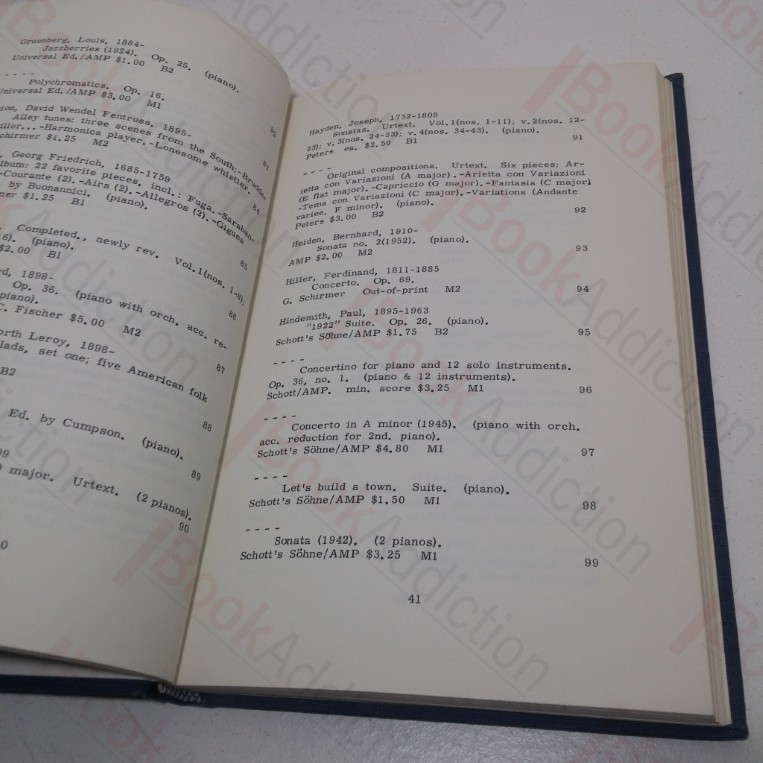 Gruenberg, Louis, 1884-
Jazzberries (1924). Op. 25. (piano).
Universal Ed./AMP $1.00 B2
- - - -
Polychromatics. Op. 16.
Universal Ed./AMP $3.00 M1
ion, David Wendel Fentross, 1895-
Alley tunes: three scenes from the South:-Brudder
iller...-Harmonica player.-Lonesome whistler.
chirmer $1.25 M2
81
, Georg Friedrich, 1685-1759
lbum: 22 favorite pieces, incl.: Fuga.-Saraban-
-Courante (2).-Airs (2).-Allegros (2).-Gigues
by Buonannici. (piano).
ner $1.25 B1
84
Completed., newly rev. Vol.1(nos. 1-8);
6). (piano).
$2.00 B1
85
rd, 1898-
Op. 36. (piano with orch. acc. re-
piano).
C. Fischer $5.00 M2
86
orth Leroy, 1898-
lads, set one; five American folk
B2
87
88
Ed. by Cumpson. (piano).
89
major. Urtext. (2 pianos).
90
0
Hayden, Joseph, 1732-1809
Sonatas. Urtext. Vol.1(nos. 1-11); v.2(nos. 12-
23); v.3(nos. 24-33); v.4(nos. 34-43). (piano).
Peters ea. $2.50 B1 91
- - - -
Original compositions. Urtext. Six pieces: Ar-
ietta con Variazioni (A major).-Arietta con Variazioni
(E flat major).-Capriccio (G major).-Fantasia (C major)
-Tema con Variazioni (C major).-Variations (Andante
variee, F minor). (piano).
Peters $3.00 B2 92
Heiden, Bernhard, 1910-
Sonata no. 2(1952). (piano).
AMP $2.00 M2 93
Hiller, Ferdinand, 1811-1885
Concerto. Op. 69.
G. Schirmer Out-of-print M2 94
Hindemith, Paul, 1895-1963
"1922" Suite. Op. 26. (piano).
Schott's Söhne/AMP $1.75 B2 95
- - - -
Concertino for piano and 12 solo instruments.
Op. 36, no. 1. (piano & 12 instruments).
Schott/AMP. min. score $3.25 M1 96
- - - -
Concerto in A minor (1945). (piano with orch.
acc. reduction for 2nd. piano).
Schott's Söhne/AMP $4.80 M1 97
- - - -
Let's build a town. Suite. (piano).
Schott's Söhne/AMP $1.50 M1 98
- - - -
Sonata (1942). (2 pianos).
Schott's Söhne/AMP $3.25 M1 99
41
BookAddiction